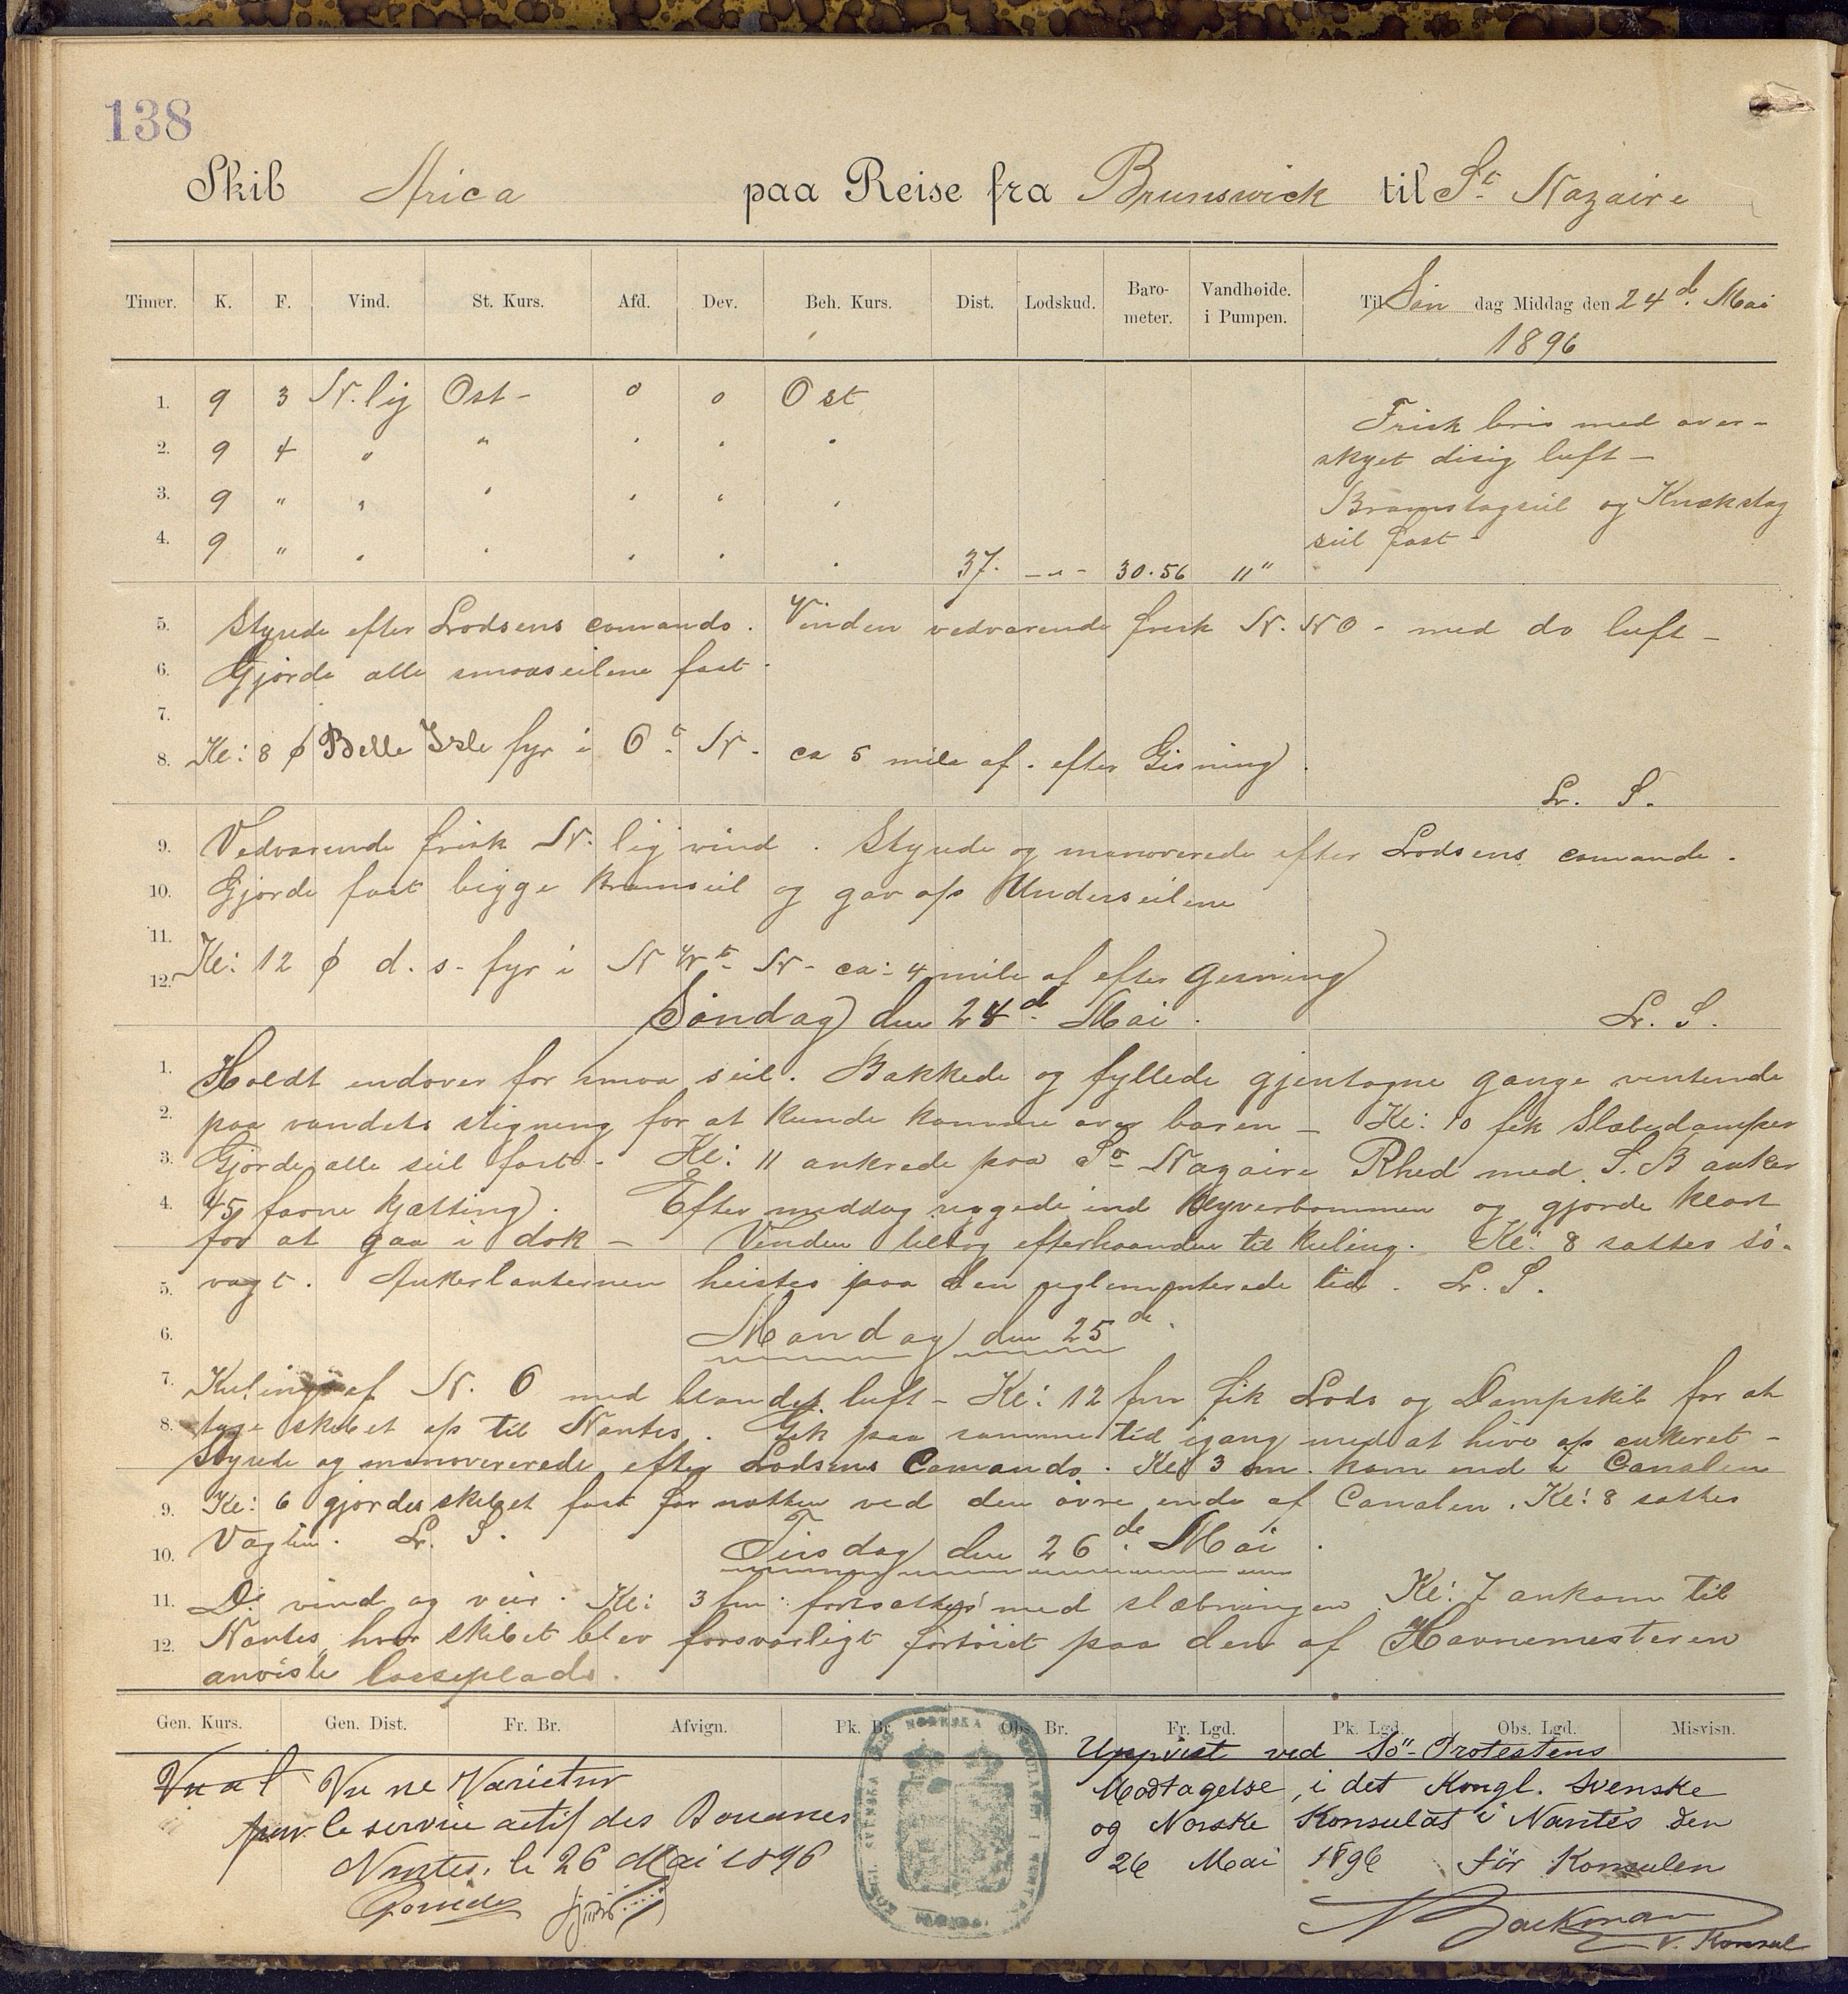 138
Skib Arica paa Reise fra Brunswick til St Nazaire
Timer. K. F. Vind. St. Kurs. Afd. Dev. Beh. Kurs. Dist. Lodskud. Baro-meter. Vandhøide. i Pumpen. Til Søn dag Middag den 24d. Mai
1896
1. 9 3 N.lig Ost - 0 0 Ost
Frisk bris med over-
2. 9 4 " " " " "
skyet disig luft -
3. 9 " " " " " "
Bramstagseil og Knækstag
4. 9 " " " " " " 37. - " - 30.56 " "
seil fast -
5. Styrede efter Lodsens comando. Vinden vedvarende frisk N.NO - med do luft -
6. Gjorde alle smaaseilene fast.
7.
8. Kl: 8 φ Belle Isle fyr i Ot N. ca 5 mile af. efter Gisning.
L. S.
9. Vedvarende frisk N.lig vind. Styrede og manøverede efter Lodsens comando.
10. Gjorde fast begge Bramseil og gav op Underseilene
11.
12. Kl: 12 φ d. s. fyr i N Vt N - ca: 4 mile af efter Gisning
Søndag den 24d Mai. L. S.
1. Holdt endover for smaa seil. Bakkede og fyllede gjentagne gange ventende
2. paa vandets stigning for at kunde komme over baren - Kl: 10 fik Slæbedamper
3. Gjorde alle seil fast. Kl: 11 ankrede paa St Nazaire Rhed med S.B anker
4. 45 favne Kjætting. Efter middag riggede ind Klyverbommen og gjorde klart
for at gaa i dok - Vinden tiltog efterhaanden til kuling. Kl: 8 sattes sø-
5. vagt. Ankerlanternen heistes paa den reglementerede tid. L. S.
6. Mandag den 25de.
7. Kuling af N. O med blandet luft - Kl: 12 fm fik Lods og Dampskib for at
8. tage skibet op til Nantes. Gik paa samme tid igang med at hive op ankeret -
Styrede og manøvererede efter Lodsens Comando. Kl: 3 em. kom ind i Canalen
9. Kl: 6 gjordes skibet fast for natten ved den øvre ende af Canalen. Kl: 8 sattes
10. Vagten. L. S. Tirsdag den 26de Mai.
11. Do vind og veir. Kl: 3 fm fortsattes med slæbningen Kl: 7 ankom til
12. Nantes, hvor skibet blev forsvarligt fortøiet paa den af Havnemesteren
anviste losseplads.
Gen. Kurs. Gen. Dist. Fr. Br. Afvign. Pk. Br. Obs. Br. Fr. Lgd. Pk. Lgd. Obs. Lgd. Misvisn.
Vu al Vu ne Varietur
pour le service actif des Douanes
Nantes, le 26 Mai 1896
Uppvist ved Sö-Protestens
Modtagelse, i det Kongl. Svenske
og Norske Konsulat i Nantes den
26 Mai 1896 För Konsulen
N Backman
v. Konsul